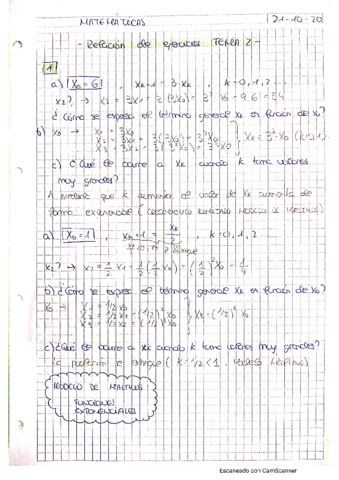 MATEMÁTICAS 21-10-20
- Relación de ejercicios TEMA 2 -
1
a) X₀ = 6 , Xk+1 = 3Xk , k = 0, 1, 2...
X₂? → X₂ = 3X₁ = 3(3X₀) = 3² X₀ = 9·6 = 54
¿Cómo se expresa el término general Xk en función de X₀?
b) X₀ → X₁ = 3X₀
X₂ = 3X₁ = 3(3X₀) = 3²X₀
X₃ = 3X₂ = 3(3²X₀) = 3³X₀
Xk = 3ᵏ·X₀
c) ¿Qué le ocurre a Xk cuando k toma valores
muy grandes?
A medida que k aumenta el valor de Xk aumenta de
forma exponencial (crecimiento ilimitado modelo de Malthus)
a) X₀ = 1 , Xk+1 = Xk/2 , k = 0, 1, 2
se extingue
X₂? → X₂ = 1/2 X₁ = 1/2 (1/2 X₀) = (1/2)² X₀ = 1/4
b) ¿Cómo se expresa el término general Xk en función de X₀?
X₀ → X₁ = 1/2 X₀
X₂ = 1/2 X₁ = (1/2)² X₀
X₃ = 1/2 X₂ = (1/2)³ X₀
Xk = (1/2)ᵏ X₀
c) ¿Qué le ocurre a Xk cuando k toma valores muy grandes?
la población se extingue ( k = 1/2 < 1 . modelo Malthus)
MODELO DE MALTHUS
FUNCIONES
EXPONENCIALES
Escaneado con CamScanner